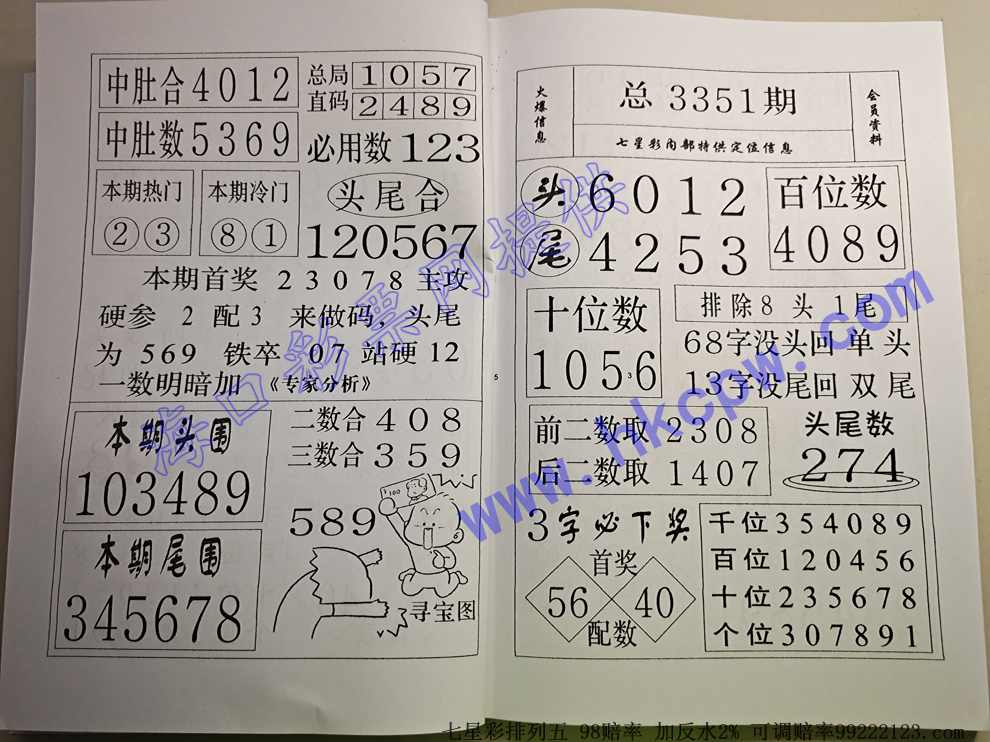 中肚合4012
中肚数5369
总局 1057
直码 2489
必用数123
本期热门
②③
本期冷门
⑧①
头尾合
120567
本期首奖 23078主攻
硬参 2 配3 来做码,头尾
为 569 铁卒 07 站硬12
一数明暗加 《专家分析》
本期头围
103489
本期尾围
345678
二数合408
三数合359
589
100
寻宝图
5
火爆信息
总3351期
七星彩内部特供定位信息
会员资料
头 6012
尾 4253
百位数
4089
十位数
10536
排除8 头 1 尾
68字没头回 单 头
13字没尾回 双 尾
前二数取 2308
后二数取 1407
头尾数
274
3字必下奖
首奖
56 40
配数
千位354089
百位120456
十位235678
个位307891
海口彩票网提供
www.hkcpw.com
七星彩排列五 98赔率 加反水2% 可调赔率99222123.com